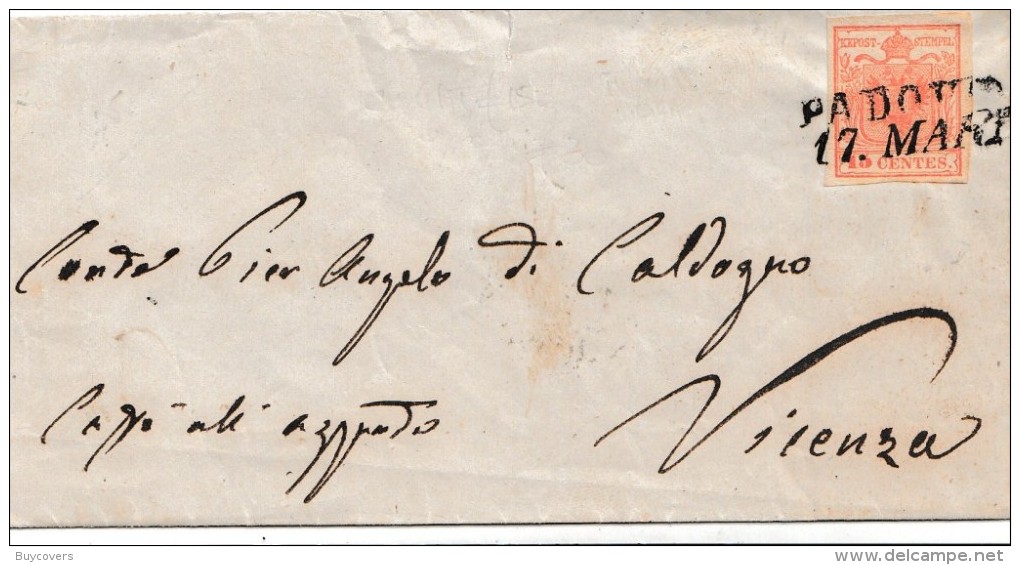 KKPOST-STEMPEL
PADOVA
17. MARZ
15 CENTES.
Conte Pier Angelo di Caldogno
Caffè all'
Vicenza
Buycovers
delcampe.net